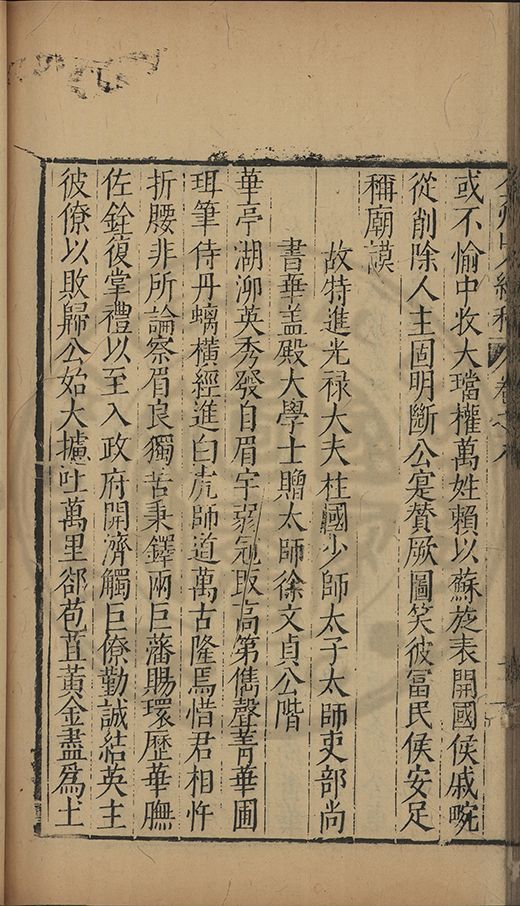 或不愉中收大璫權萬姓賴以蘇旋表開國侯戚畹
從削除人主固明斷公寔賛厥圖笑彼冨民侯安足
稱廟謨
故特進光禄大夫柱國少師太子太師吏部尚
書華盖殿大學士贈太師徐文貞公階
華亭湖泖英秀發自眉宇弱冠取高第儁聲菁華圃
珥筆侍丹螭橫經進白虎師道萬古隆焉惜君相忤
折腰非所論察眉良獨苦秉鐸兩巨藩賜環歷華膴
佐銓復掌禮以至入政府開濟觸巨僚勤誠結英主
彼僚以敗歸公始大攄吐萬里郤苞苴黃金盡爲土